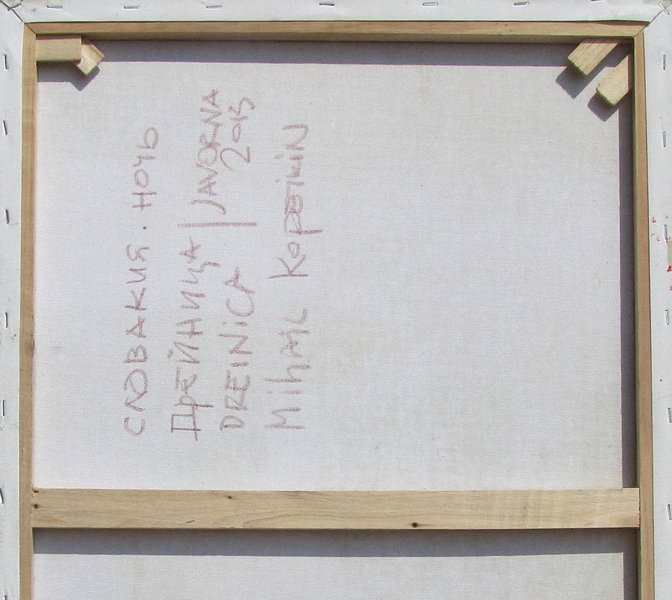 СЛОВАКИЯ. НОЧЬ
ДРЕЙНИЦА | JAVORNA
DREINICA 2013
MihAiL KOPEiKiN